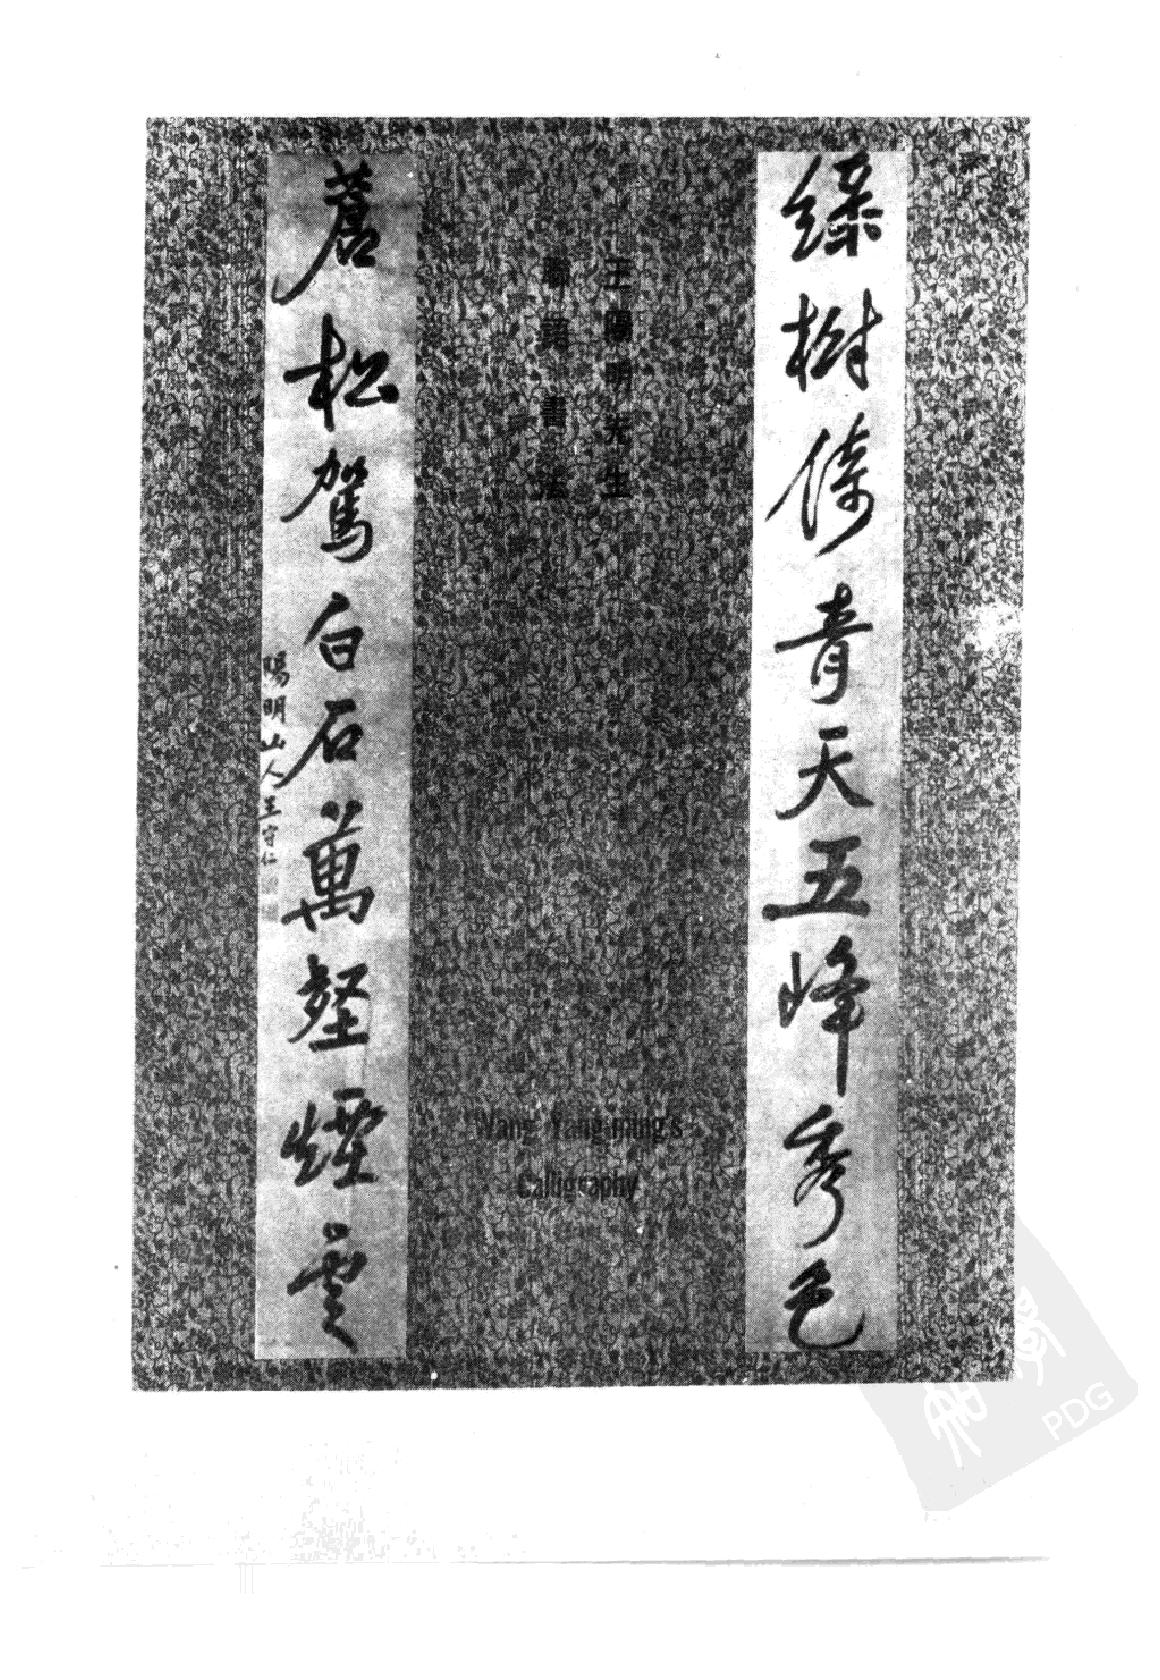 綠樹倚青天五峰秀色
王陽明先生
聯語書法
Wang Yang-ming's
Calligraphy
蒼松駕白石萬壑煙雲
陽明山人王守仁
PDG